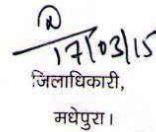 17/03/15
जिलाधिकारी,
मधेपुरा।